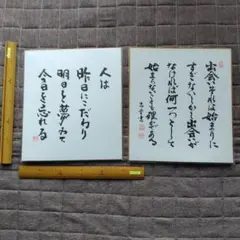 出会いそれは始まりに
すぎないしかし出会いが
なければ何一つとして
始まらないことも である
人は
昨日にこだわり
明日を夢みて
今日を忘れる